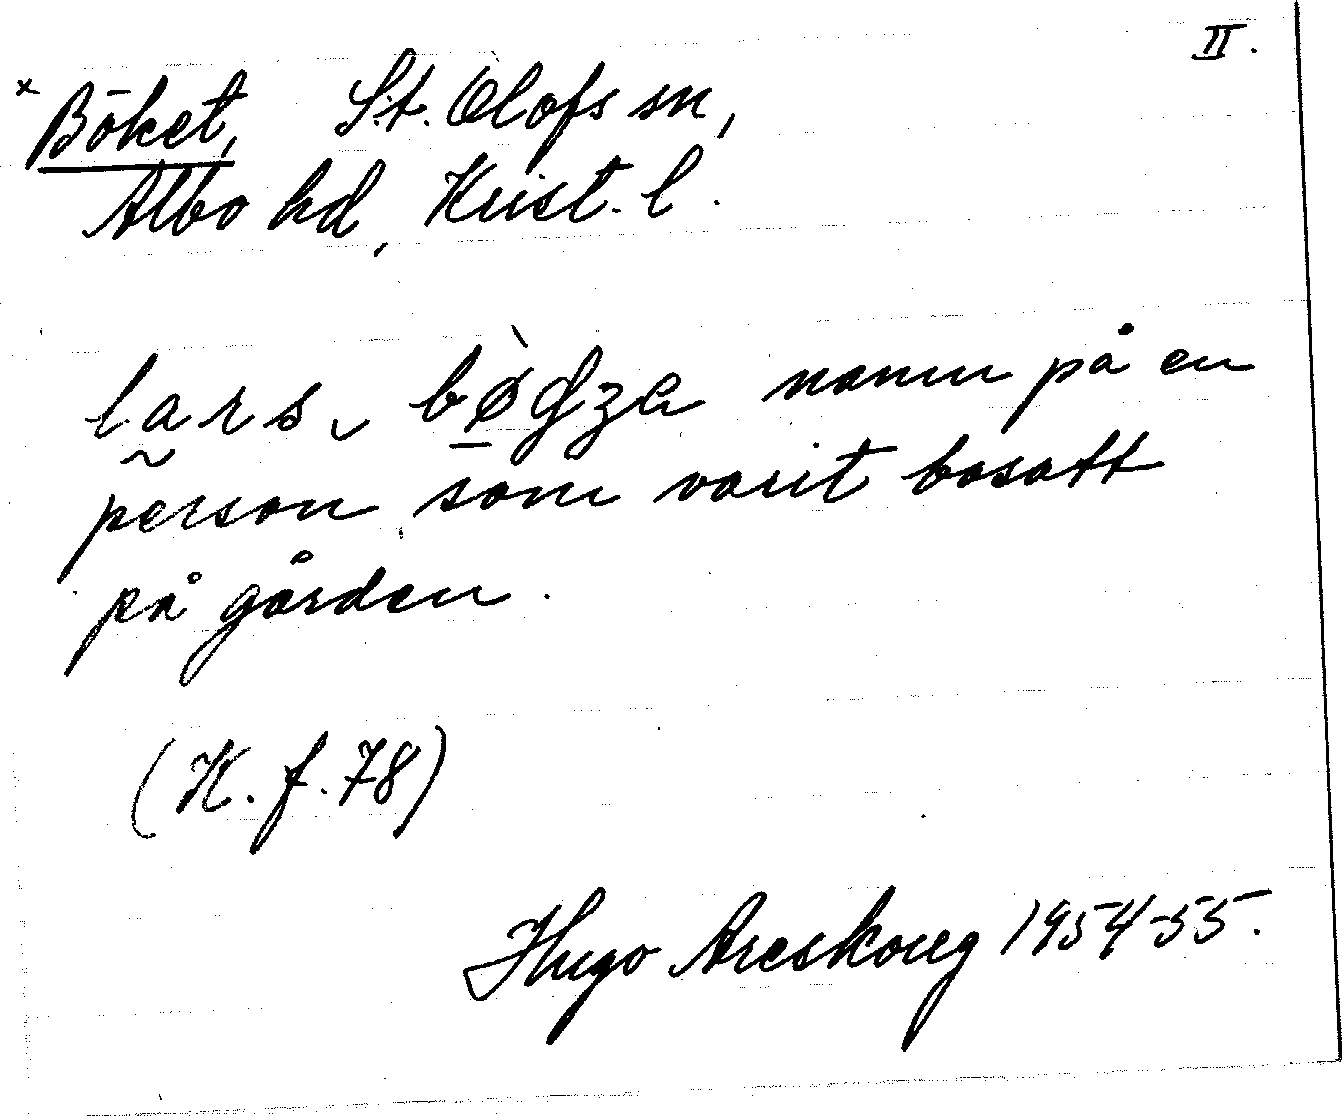 II.
x Böket, St. Olofs sn,
Albo hd, Krist. l.
lars, bø̀gza namn på en
person som varit bosatt
på gården.
(K. f. 78)
Hugo Areskoug 1954-55.